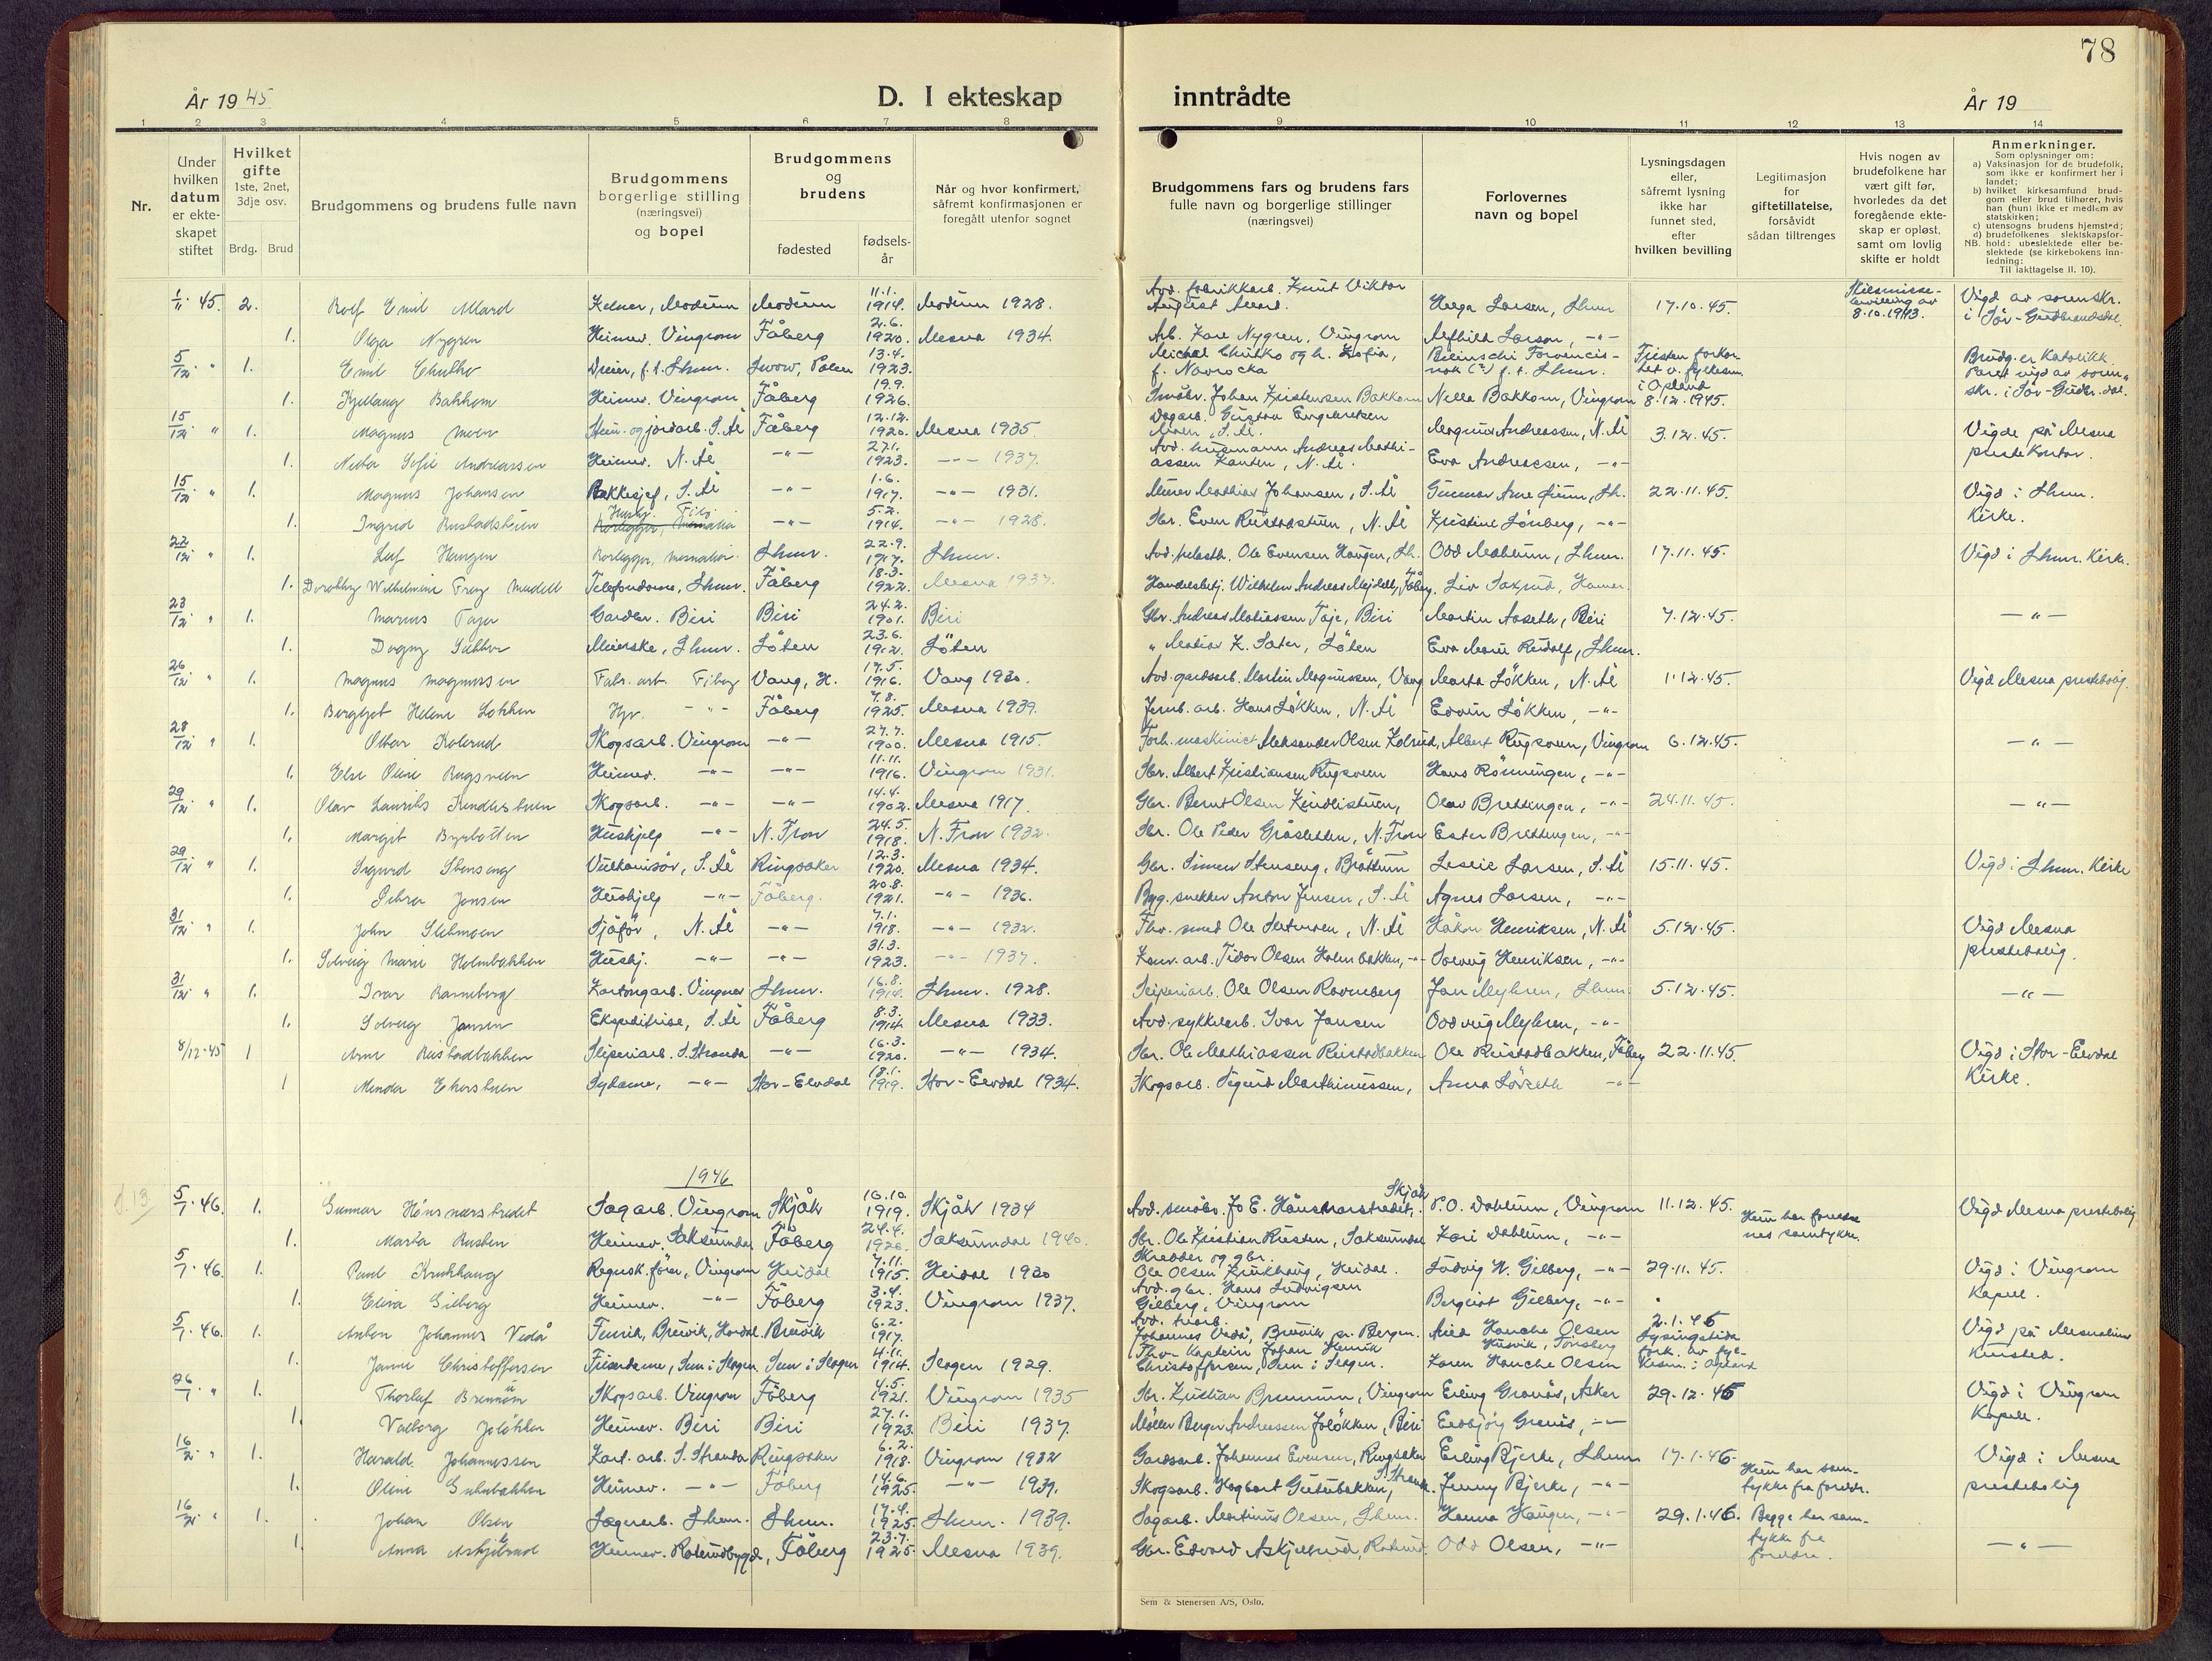 78
År 1945
D. I ekteskap inntrådte
År 19
1 2 3 4 5 6 7 8 9 10 11 12 13 14
Nr.
Under hvilken datum er ekteskapet stiftet
Hvilket gifte 1ste, 2net, 3dje osv.
Brdg. Brud
Brudgommens og brudens fulle navn
Brudgommens borgerlige stilling (næringsvei) og bopel
Brudgommens og brudens
fødested
fødsels-år
Når og hvor konfirmert, såfremt konfirmasjonen er foregått utenfor sognet
Brudgommens fars og brudens fars fulle navn og borgerlige stillinger (næringsvei)
Forlovernes navn og bopel
Lysningsdagen eller, såfremt lysning ikke har funnet sted, efter hvilken bevilling
Legitimasjon for giftetillatelse, forsåvidt sådan tiltrenges
Hvis nogen av brudefolkene har vært gift før, hvorledes da det foregående ekteskap er opløst, samt om lovlig skifte er holdt
Anmerkninger.
Som oplysninger om:
a) Vaksinasjon for de brudefolk, som ikke er konfirmert her i landet;
b) hvilket kirkesamfund brudgom eller brud tilhører, hvis han (hun) ikke er medlem av statskirken;
c) utensogns brudens hjemsted;
d) brudefolkenes slektskapsforhold: ubeslektede eller beslektede (se kirkebokens innledning:
NB. Til iakttagelse II. 10).
1/11 45. 2. Rolf Emil Allard Kelner, Modum Modum 11.1. 1914. Modum 1928. Avd. fabrikkarb. Knut Viktor August Helga Larsen, Lhmr 17.10.45. Skilsmisse-bevilling av 8.10.1943. Vigd av sorenskr. i Sør-Gudbrandsdal.
1. Olga Nygren Heimev. Vingrom Fåberg 2.6. 1920. Mesna 1934. Arb. Kare Nygren, Vingrom Alfhild Larsen, -"-
5/12 " 1. Emil Dreier, f.t. Lhmr. Lwow, Polen 13.4. 1923. Michal og h. Zofia, f. Navrocka f.t. Lhmr. Fristen forkortet v. fylkesm. i Opland 8.12.1945. Brudg. er Katolikk. Paret vigd av sorenskr. i Sør-Gudbr.dal.
1. Kjellaug Bakkom Heimev. Vingrom Fåberg 19.9. 1926. Småbr. Johan Kristensen Bakkom Nella Bakkom, Vingrom
15/12 " 1. Magnus Moen Stein- og jordarb. S. Ål Fåberg 12.12. 1920. Mesna 1935. Dagarb. Gustav Engebretsen Moen, S. Ål. Magnus Andreassen, N. Ål 3.12.45. Vigde på Mesna prestekontor.
1. Sofie Andreassen Heimev. N. Ål -"- 27.1. 1923. -"- 1937. Avd. husmann Andreas Mathiassen Kanten, N. Ål. Eva Andreassen, -"-
15/12 " 1. Magnus Johansen Bakkesjef, S. Ål -"- 1.6. 1917. -"- 1931. Murer Mathias Johansen, S. Ål Gunnar Lh. 22.11.45. Vigd i Lhmr. Kirke.
1. Ingrid Rustadstuen Hushj. -"- 5.2. 1914. -"- 1928. Sbr. Even Rustadstuen, N. Ål Kristine Lönberg, -"-
22/12 " 1. Leif Haugen Rørlegger, Lhmr. 22.9. 1917. Lhmr. Avd. Ole Evensen Haugen, Lh. Odd Lhmr. 17.11.45. Vigd i Lhmr. Kirke.
1. Dorothy Wilhelmine Telefondame, Lhmr. Fåberg 18.3. 1922. Mesna 1937. Handelsbetj. Wilhelm Andreas Mejdell, Fåberg. Liv Saxrud, Hamar
23/12 " 1. Marius Gardbr. Biri Biri 24.2. 1901. Biri Gbr. Andreas Matiassen Biri Martin Aaseth, Biri 7.12.45. -"-
1. Dagny Meierske, Lhmr. Löten 23.6. 1912. Löten " Matias K. Löten Eva Marie Rudolf, Lhmr.
26/12 " 1. Magnus Magnussen Fabr. arb. Fåberg Vang, H. 17.5. 1916. Vang 1930. Avd. gardsarb. Martin Magnussen, Vang Marta Løkken, N. Ål 1.12.45. Vigd Mesna prestebolig.
1. Bergljot Helene Løkken -"- Fåberg 7.8. 1925. Mesna 1939. Jernb. arb. Hans Løkken, N. Ål Edvin Løkken, -"-
28/12 " 1. Ottar Kolsrud Skogsarb. Vingrom -"- 27.7. 1900. Mesna 1915. Forh. maskinist Aleksander Olsen Kolsrud, Albert Rugsveen, Vingrom 6.12.45. -"-
1. Else Oline Rugsveen Heimev. -"- -"- 11.11. 1916. Vingrom 1931. Sbr. Albert Kristiansen Rugsveen Hans Rönningen, -"-
29/12 " 1. Olav Laurits Kindlistuen Skogsarb. -"- -"- 14.4. 1902. Mesna 1917. Gbr. Bernt Olsen Kindlistuen, Olav Brettingen, -"- 24.11.45. -"-
1. Margit Byrbotten Hushjelp -"- N. Fron 24.5. 1918. N. Fron 1932. Sbr. Ole Peder Gråsletten, N. Fron Ester Brettingen, -"-
29/12 " 1. Sigurd Stenseng Vulkanisør, S. Ål Ringsaker 12.3. 1920. Mesna 1934. Gbr. Simen Stenseng, Brøttum Leslie Larsen, S. Ål 15.11.45. Vigd i Lhmr. Kirke
1. Petra Jensen Hushjelp -"- Fåberg. 20.8. 1921. -"- 1936. Byg. snekker Anton Jensen, S. Ål Agnes Larsen, -"-
31/12 " 1. John Sletmoen Sjåfør, N. Ål -"- 7.1. 1918. -"- 1932. Fhv. smed Ole N. Ål Håkon Henriksen, N. Ål 5.12.45. Vigd Mesna prestebolig.
1. Solveig Marie Holmbakken Hushj. -"- -"- 31.3. 1923. -"- 1937. Kom. arb. Tidor Olsen Holmbakken, -"- Solveig Henriksen, -"-
31/12 " 1. Ivar Ravneberg Kartongarb. Vingnes Lhmr. 16.8. 1914. Lhmr. 1928. Sliperiarb. Ole Olsen Ravneberg Jan Myhren, Lhmr. 5.12.45. -"-
1. Solveig Jansen Ekspeditrise, S. Ål Fåberg 8.3. 1914. Mesna 1933. Avd. sykkelarb. Ivar Jansen Oddveig Myhren, -"-
8/12-45 1 Arne Rustadbakken Sliperiarb. S. Stranda -"- 16.3. 1920. -"- 1934. Sbr. Ole Mathiassen Rustadbakken Ole Rustadbakken, Fåberg 22.11.45. Vigd i Stor-Elvdal Kirke.
1 Minda Sydame, -"- Stor-Elvdal 18.1. 1919. Stor-Elvdal 1934. Skogsarb. Sigurd Marthinussen, Anna -"-
1946
5/1.46. 1. Gunnar Sagarb. Vingrom Skjåk 16.10. 1919. Skjåk 1934 Avd. småbr. Jo E. Skjåk P.O. Dahlum, Vingrom 11.12.45. Hun har foreldrenes samtykke. Vigd Mesna prestebolig
1. Marta Rusten Heimev. Saksumdal Fåberg 24.4. 1926. Saksumdal 1940. Sbr. Ole Kristian Rusten, Saksumdal Kari Dahlum, -"-
5/1.46. 1. Paul Krukhaug Regnsk.fører, Vingrom Heidal 7.11. 1915. Heidal 1930 Skredder og gbr. Ole Olsen Krukhaug, Heidal. Ludvig N. Gilberg, -"- 29.11.45. Vigd i Vingrom Kapell.
1. Elisa Gilberg Heimev. -"- Fåberg 3.4. 1923. Vingrom 1937. Avd. gbr. Hans Ludvigsen Gilberg, Vingrom Bergljot Gilberg, -"-
5/1.46. 1. Anton Johannes Vedå Fenrik, Bruvik, Hordal. Bruvik 6.2. 1917. Avd. Johannes Vedå, Bruvik pr. Bergen. Hanche Olsen Husvik, Tønsberg 2.1.46 Lysingstida fork. av fylkesm. i Opland Vigd på Mesnalien kursted.
1. Janne Christoffersen Sem i Slagen. Sem i Slagen 4.11. 1914. Slagen 1929. Fhv. Kaptein Johan Henrik Christoffersen, Sem i Slagen. Karen Hanche Olsen
26/1 " 1. Thorleif Brennum Skogsarb. Vingrom Fåberg 4.5. 1921. Vingrom 1935 Sbr. Kristian Brennum, Vingrom Erling Granås, Asker 29.12.45 Vigd i Vingrom Kapell.
1. Valborg Joløkken Heimev. Biri Biri 27.1. 1923. Biri 1937. Møller Berger Andreassen Joløkken, Biri Eldbjörg Granås, -"-
16/2 " 1. Harald Johannessen Kart. arb. S. Stranda Ringsaker 6.2. 1918. Vingrom 1932 Gardsarb. Johannes Evensen, Ringsaker Erling Bjerke, Lhmr 17.1.46. Hun har samtykke fra foreldr. Vigd i Mesna prestebolig
1. Oline Gutubakken Heimev. -"- Fåberg 14.6. 1925. -"- 1939. Skogsarb. Hagbart Gutubakken, S. Strand. Jenny Bjerke, -"-
16/2 " 1. Johan Olsen Sagarb. Lhmr. Lhmr. 17.4. 1925. Lhmr. 1939. Sagarb. Martinus Olsen, Lhmr. Hanna Haugen, -"- 29.1.46. Begge har samtykke fra foreldre. -"-
1. Anna Askjelsrud Heimev. Roterudbygda, Fåberg 23.7. 1925. Mesna 1939. Gbr. Edvard Askjelsrud, Roterud. Odd Olsen, -"-
Sem & Stenersen A/S, Oslo.